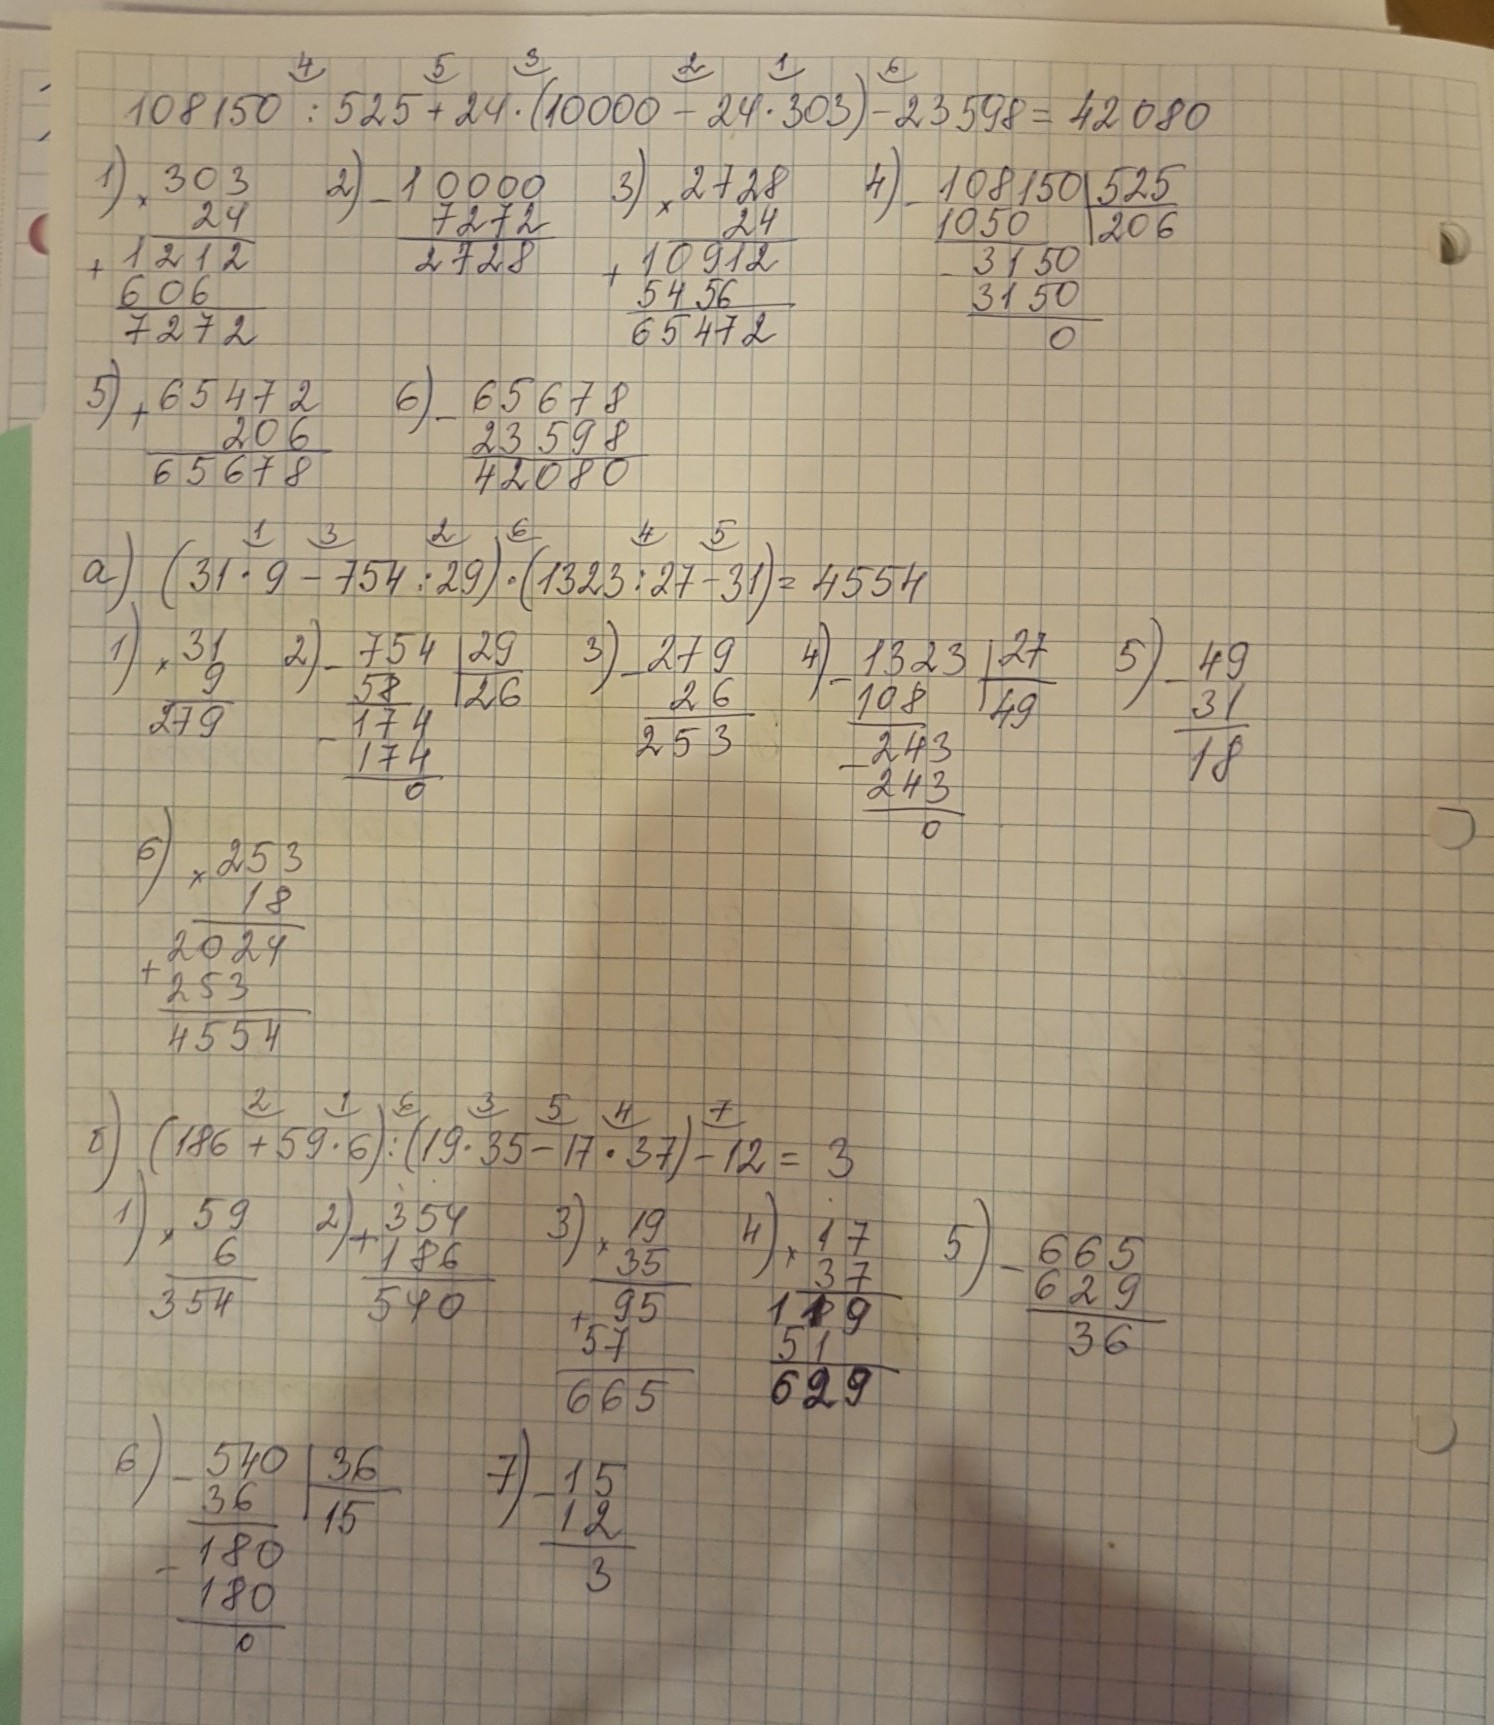 4 5 3 2 1 6
108150 : 525 + 24 · (10000 - 24 · 303) - 23598 = 42080
1) × 303 2) - 10000 3) × 2728 4) - 108150 | 525
24 7272 24 1050 | 206
+ 1212 2728 + 10912 - 3150
606 5456 3150
7272 65472 0
5) + 65472 6) - 65678
206 23598
65678 42080
1 3 2 6 4 5
а) (31 · 9 - 754 : 29) · (1323 : 27 - 31) = 4554
1) × 31 2) - 754 | 29 3) - 279 4) - 1323 | 27 5) - 49
9 58 | 26 26 108 | 49 31
279 - 174 253 - 243 18
174 243
0 0
6) × 253
18
2024
+ 253
4554
2 1 6 3 5 4 7
б) (186 + 59 · 6) : (19 · 35 - 17 · 37) - 12 = 3
1) × 59 2) + 354 3) × 19 4) × 17 5) - 665
6 186 35 37 629
354 540 + 95 119 36
57 51
665 629
6) - 540 | 36 7) - 15
36 | 15 12
- 180 3
180
0